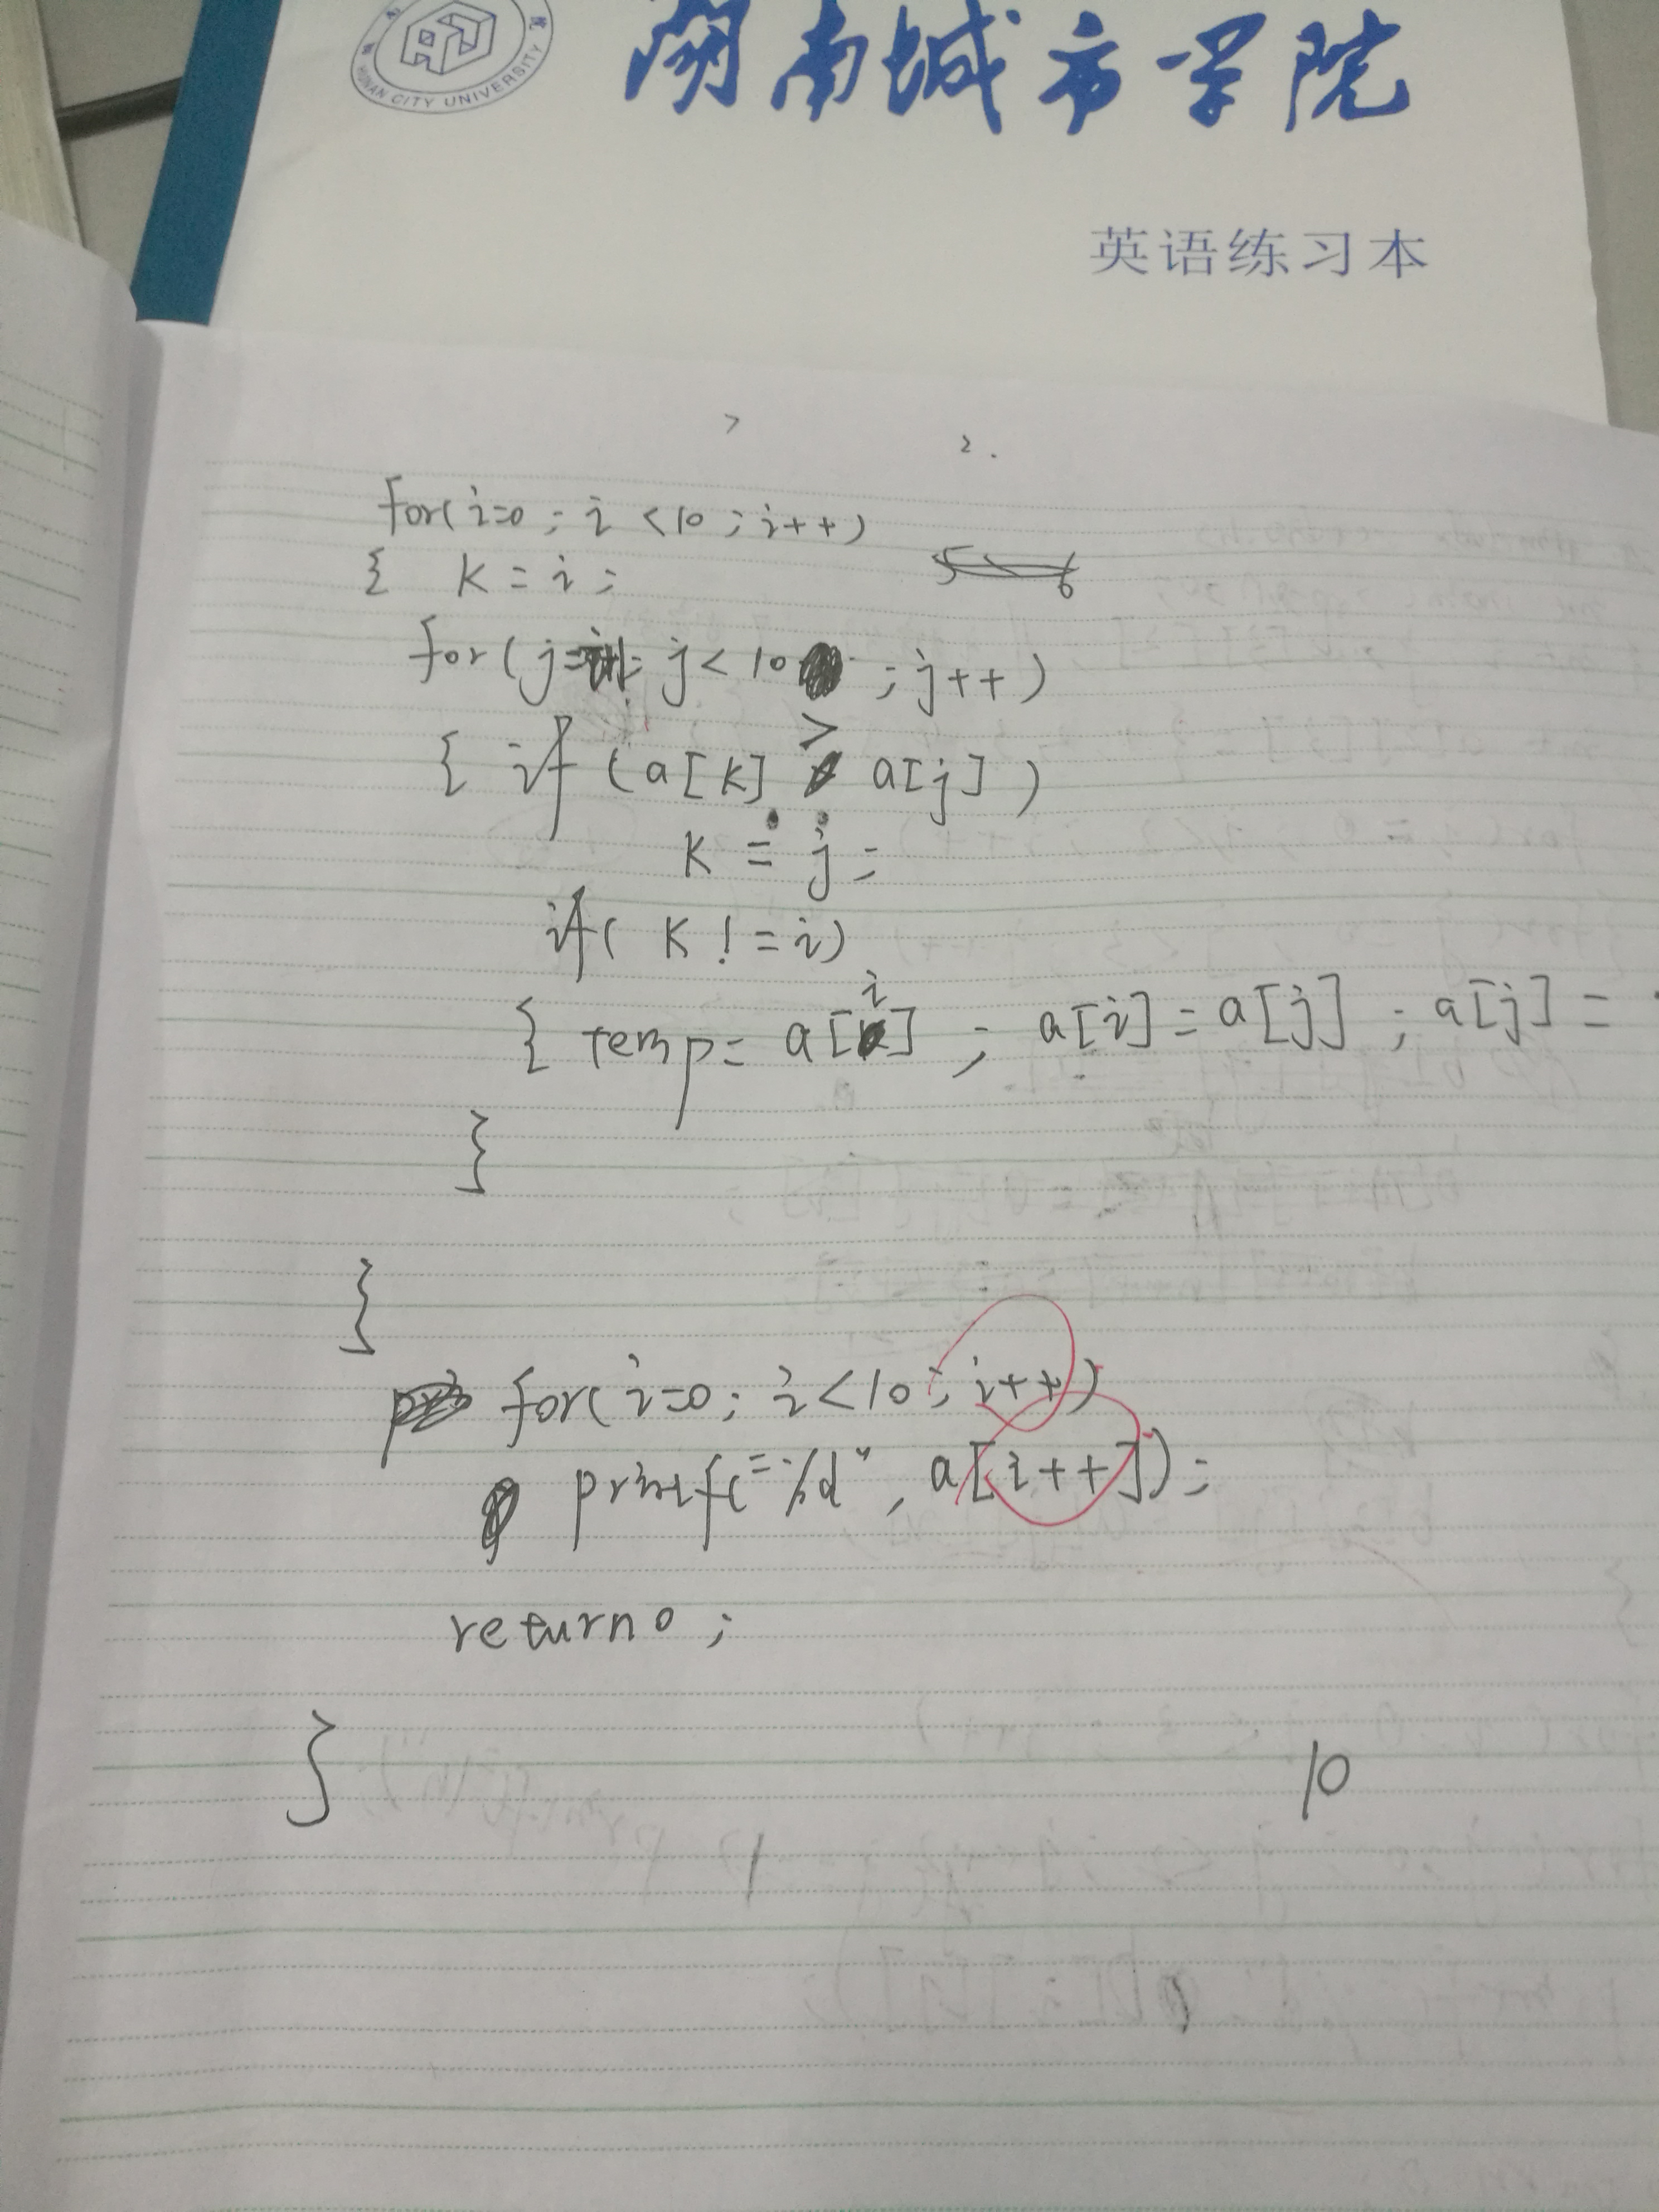 HUNAN CITY UNIVERSITY
湖南城市学院
英语练习本
2.
for(i=0; i<10; i++)
{ K=i;
for(j=i+1; j<10; j++)
{ if (a[K] > a[j])
K = j;
if( K != i)
{ temp= a[i]; a[i]=a[j]; a[j]=
}
}
for(i=0; i<10; i++)
printf("%d", a[i++]);
return 0;
}
10